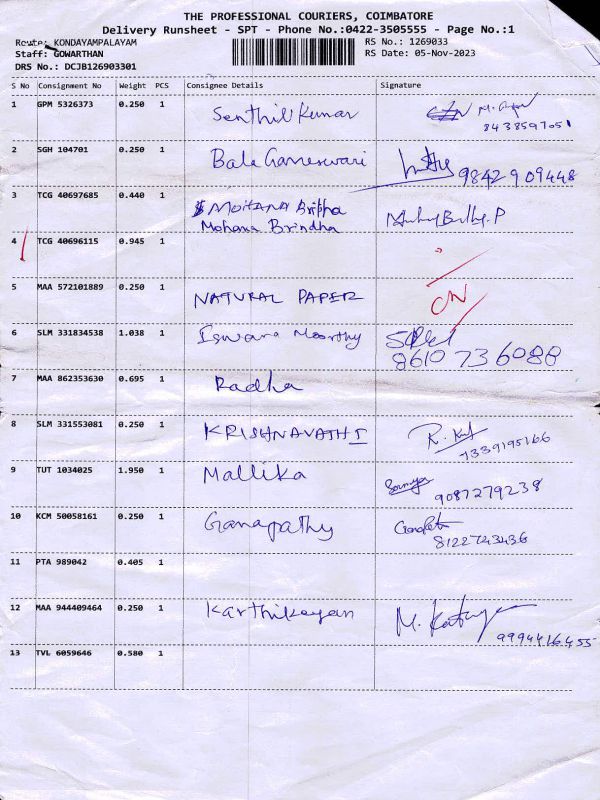 THE PROFESSIONAL COURIERS, COIMBATORE
Delivery Runsheet - SPT - Phone No.:0422-3505555 - Page No.:1
Route: KONDAYAMPALAYAM RS No.: 1269033
Staff: GOWARTHAN RS Date: 05-Nov-2023
DRS No.: DCJB126903301
S No Consignment No Weight PCS Consignee Details Signature
1 GPM 5326373 0.250 1 Senthil Kumar
8438597051
2 SGH 104701 0.250 1 Bala Gameswari 9842909448
3 TCG 40697685 0.440 1 MOHANA Bripha
Mohana Brindha
4 TCG 40696115 0.945 1
5 MAA 572101889 0.250 1 NATURAL PAPER CN
6 SLM 331834538 1.038 1 Iswara Moorthy
8610 736088
7 MAA 862353630 0.695 1 Radha
8 SLM 331553081 0.250 1 KRISHNAVATHI
7339195166
9 TUT 1034025 1.950 1 Mallika
9087279238
10 KCM 50058161 0.250 1 Ganapathy
8122743436
11 PTA 989042 0.405 1
12 MAA 944409464 0.250 1 Karthikayan
9994416455
13 TVL 6059646 0.580 1